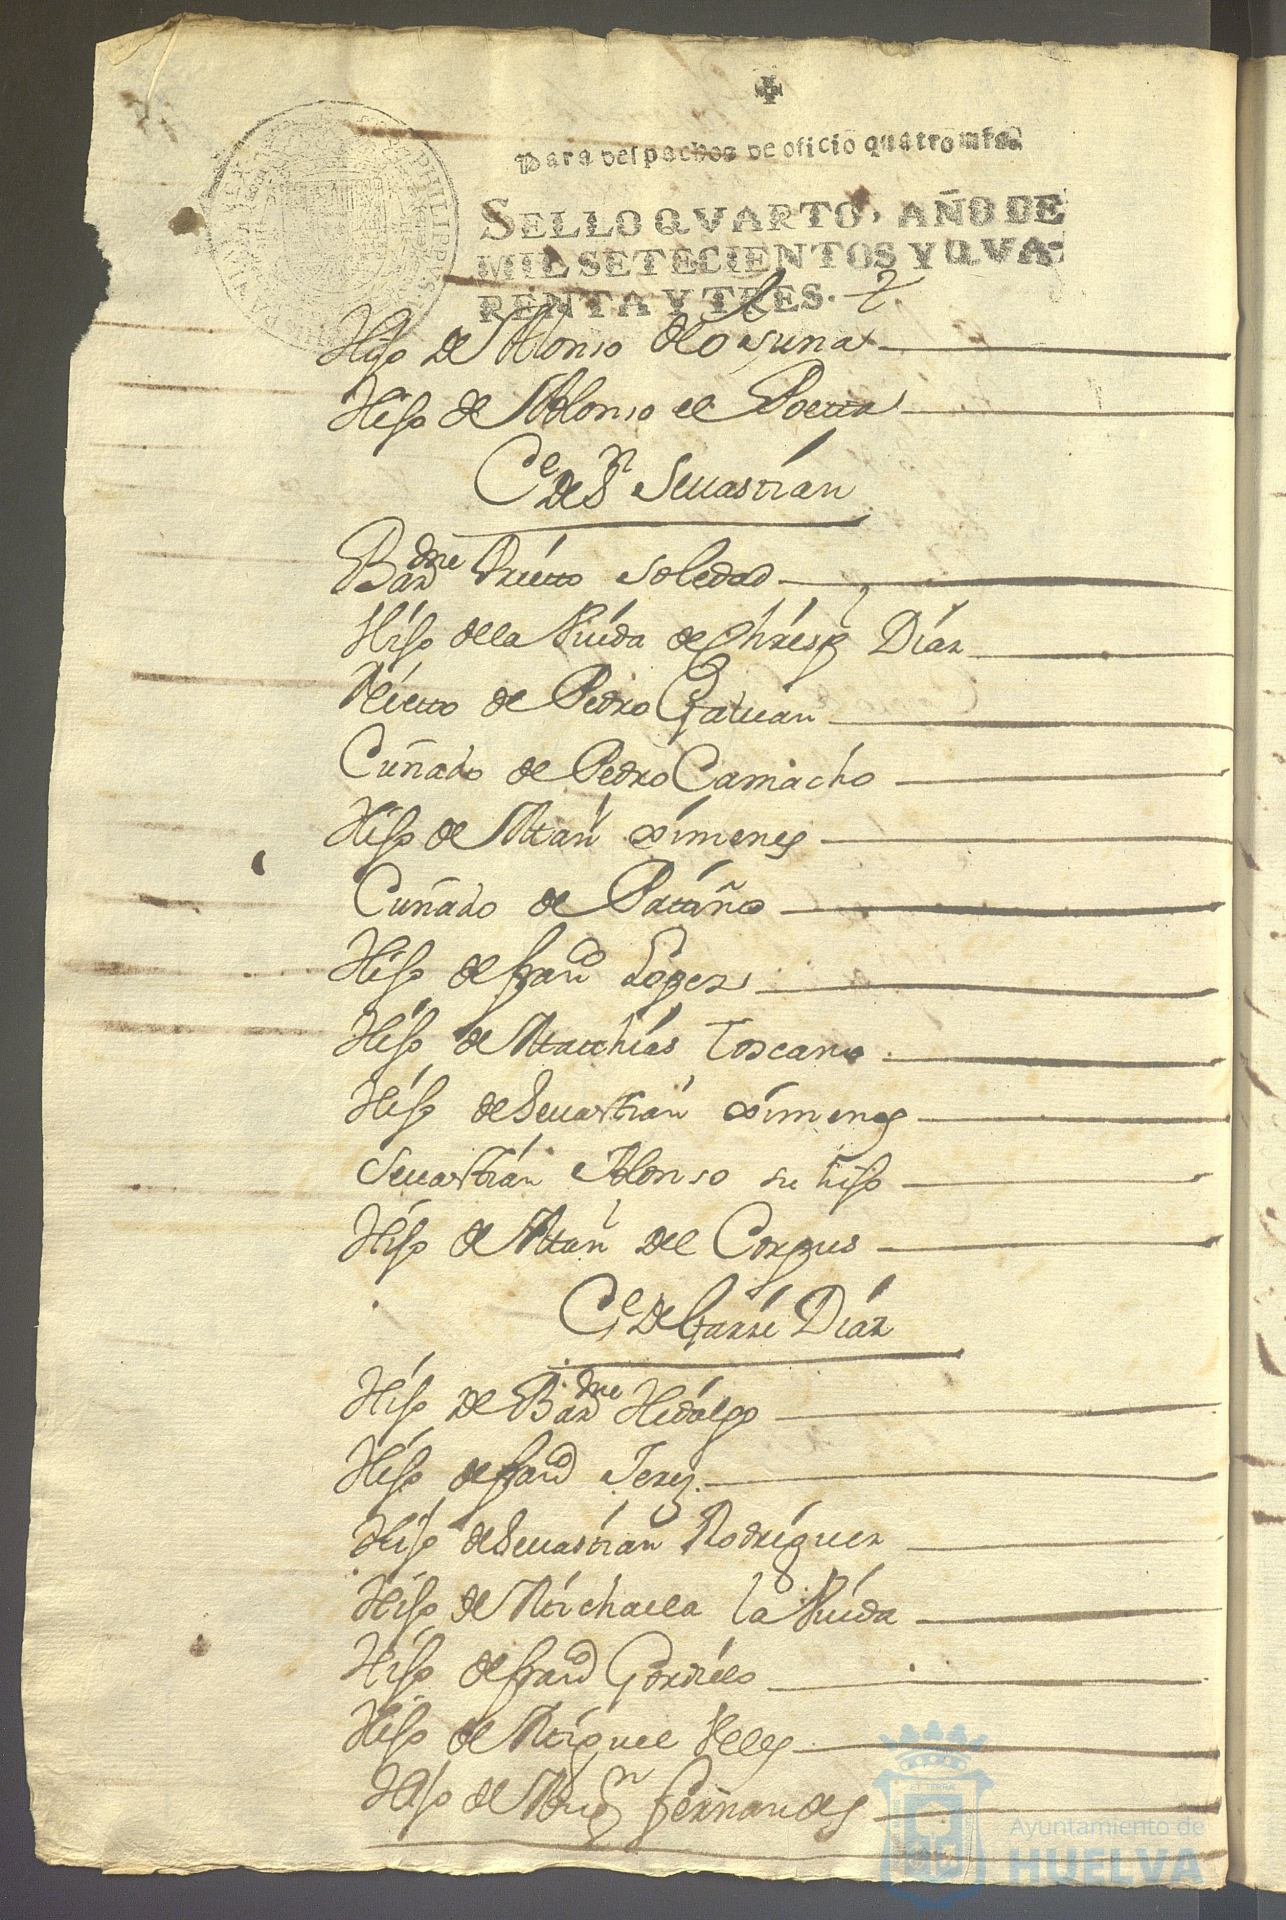 Para despachos de oficio quatro mrs.
SELLO QVARTO, AÑO DE
MIL SETECIENTOS Y QVA-
RENTA Y TRES.
PHILIPPVS
Hijo de Alonso de Osuna
Hijo de Alonso el Poeta
Ce de Sn Sevastian
Barme Prieto Soledad
Hijo de la Viuda de Diaz
Nieto de Pedro Galvan
Cuñado de Pedro Camacho
Hijo de Man Ximenes
Cuñado de Patiño
Hijo de Franco Lopez
Hijo de Matthias Toscano
Hijo de Sevastian Ximenes
Sevastian Alonso su hijo
Hijo de Man del Corpus
Ce de Garzi Diaz
Hijo de Barme Hidalgo
Hijo de Franco Jerez
Hijo de Sevastian Rodriguez
Hijo de Michaela la Viuda
Hijo de Franco Gordillo
Hijo de Miguel Velez
Hijo de Fernandes
Ayuntamiento de
HUELVA